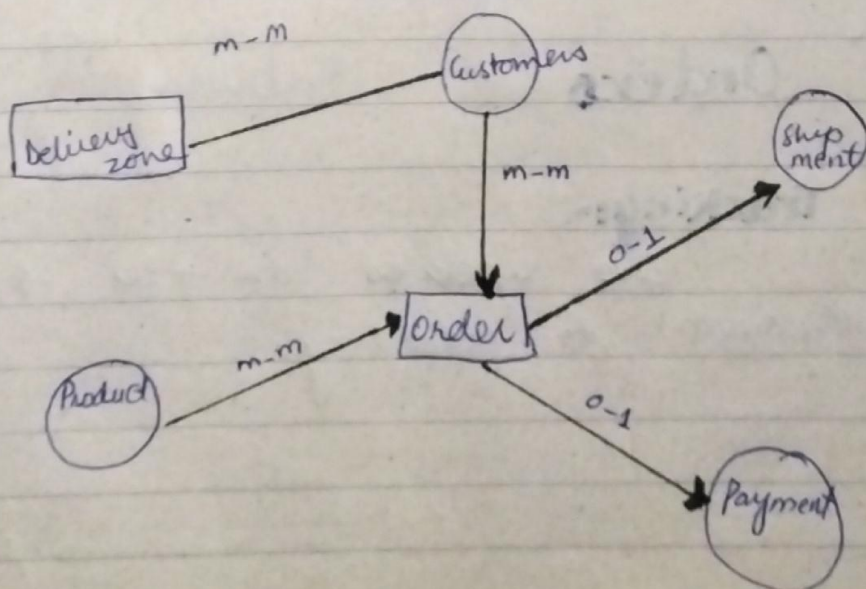 m-m
Customers
Delivery
zone
ship
ment
m-m
0-1
order
m-m
Product
0-1
Payment